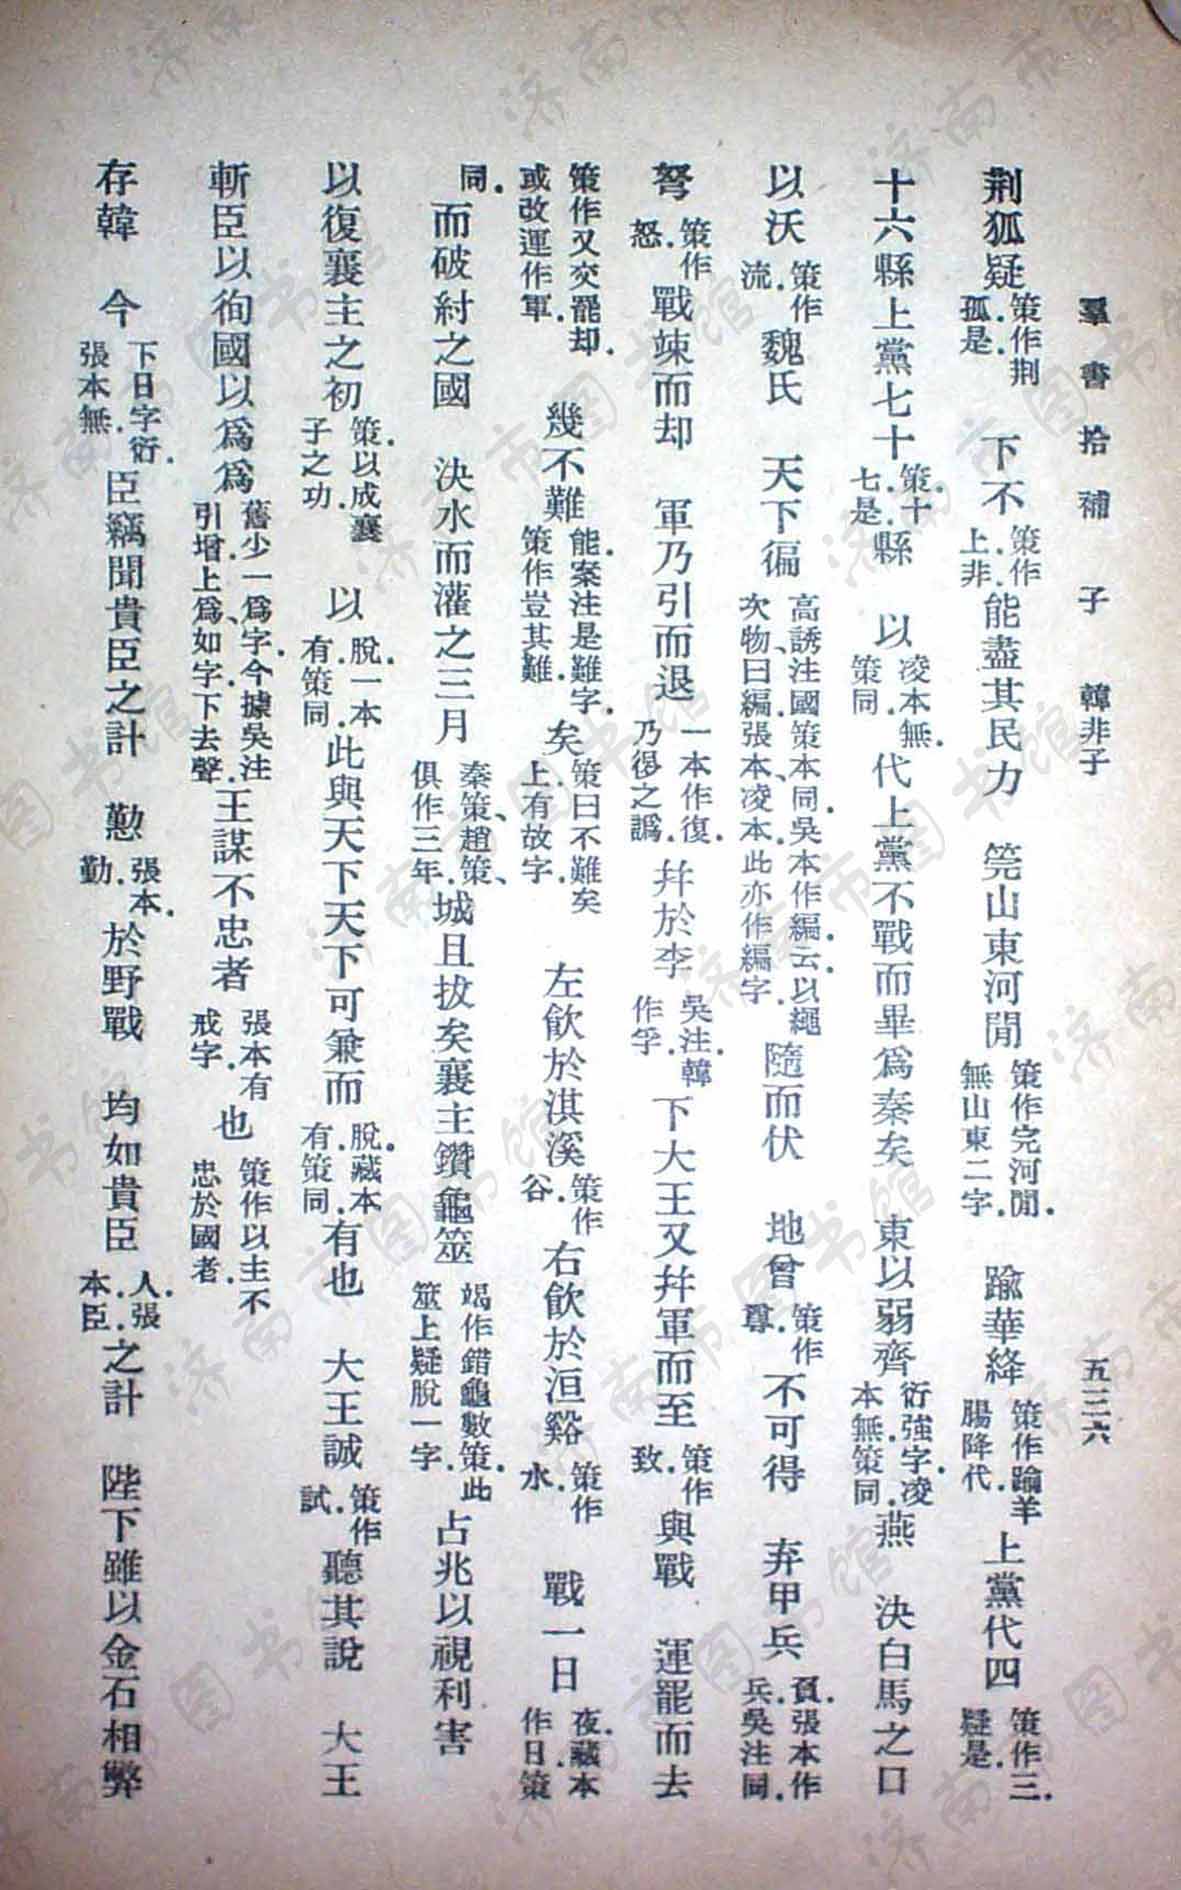 羣書拾補 子 韓非子 五三六
荆狐疑策作荆孤.是. 下不策作上非.能盡其民力 筦山東河閒策作完河閒.無山東二字. 踰華絳策作踰羊腸降代.上黨代四策作三.疑是.
十六縣上黨七十策.十七.是.縣 以凌本無.策同.代上黨不戰而畢爲秦矣 東以弱齊衍強字.凌本無.策同.燕 決白馬之口
以沃策作流.魏氏 天下徧高誘注國策本同.吳本作編.云以繩次物曰編.張本、凌本.此亦作編字.隨而伏 地曾策作尊.不可得 弃甲兵負.張本作兵.吳注同.
弩策作怒.戰竦而却 軍乃引而退一本作復.乃得之譌.幷於李吳注.韓作孚.下大王又幷軍而至策作致.與戰 運罷而去
策作又交罷却.或改運作軍. 幾不難能.案注是難字.策作豈其難.矣策曰不難矣上有故字. 左飲於淇溪策作谷.右飲於洹谿策作水. 戰一日夜.藏本作日.策
同.而破紂之國 決水而灌之三月秦策、趙策、俱作三年.城且拔矣襄主鑽龜筮竭作錯龜數策.此筮上疑脫一字.占兆以視利害
以復襄主之初策.以成襄子之功. 以脫.一本有.策同.此與天下天下可兼而脫.藏本有.策同.有也 大王誠策作試.聽其說 大王
斬臣以徇國以爲爲舊少一爲字.今據吳注引增.上爲、如字.下去聲.王謀不忠者張本有戒字.也策作以主不忠於國者.
存韓 今下日字衍.張本無.臣竊聞貴臣之計 懃張本.勤.於野戰 均如貴臣人.張本.臣.之計 陛下雖以金石相弊
济南市图书馆